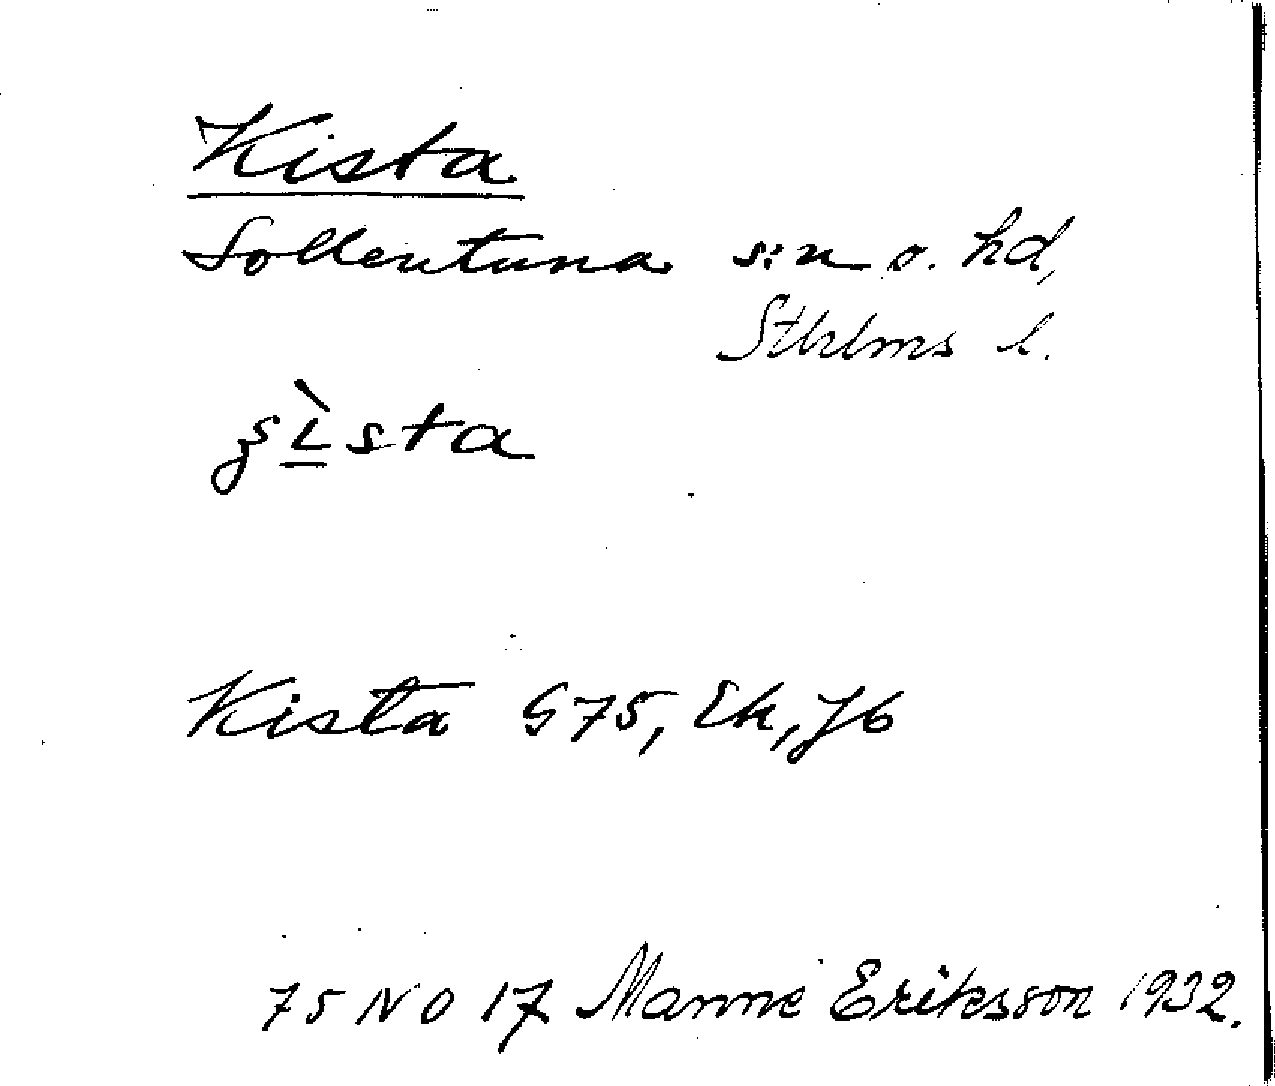 Kista
Sollentuna s:n o. hd,
Sthlms l.
ʂı̀sta
Kista G75, Ek, Jb
75 NO 17 Manne Eriksson 1932.